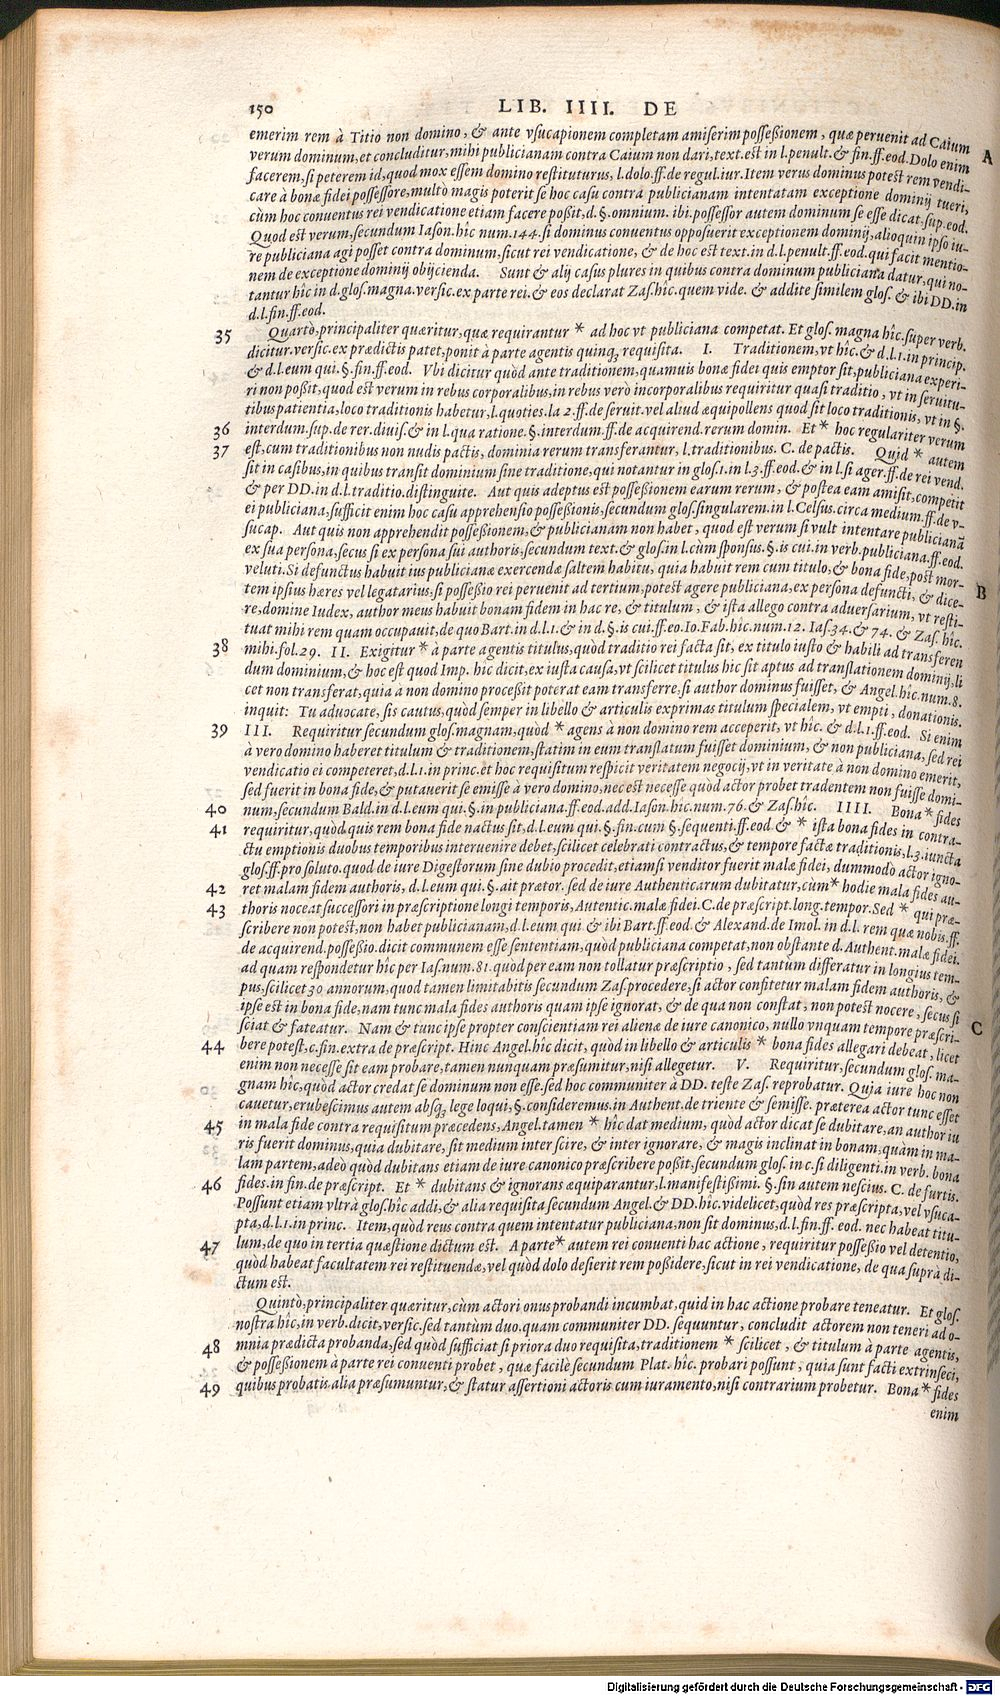 150 LIB. IIII. DE
emerim rem à Titio non domino, & ante vſucapionem completam amiſerim poſſeßionem, quæ peruenit ad Caium A
verum dominum, et concluditur, mihi publicianam contra Caium non dari, text. est in l. penult. & fin. ff. eod. Dolo enim
facerem, ſi peterem id, quod mox eſſem domino reſtituturus, l. dolo. ff. de regul. iur. Item verus dominus poteſt rem vendi-
care à bonæ fidei poſſeſſore, multò magis poterit ſe hoc caſu contra publicianam intentatam exceptione dominij tueri,
cùm hoc conuentus rei vendicatione etiam facere poßit, d. §. omnium. ibi. poſſeſſor autem dominum ſe eſſe dicat, ſup. eod.
Quod eſt verum, ſecundum Iaſon. hîc num. 144. ſi dominus conuentus oppoſuerit exceptionem dominij, alioquin ipſo iu-
re publiciana agi poſſet contra dominum, ſicut rei vendicatione, & de hoc eſt text. in d. l. penult. ff. eod. qui facit mentio-
nem de exceptione dominij obijcienda. Sunt & alij caſus plures in quibus contra dominum publiciana datur, qui no-
tantur hîc in d. gloſ. magna. verſic. ex parte rei. & eos declarat Zaſ. hîc. quem vide. & addite ſimilem gloſ. & ibi DD. in
d. l. fin. ff. eod.
35 Quartò, principaliter quæritur, quæ requirantur * ad hoc vt publiciana competat. Et gloſ. magna hîc. ſuper verb.
dicitur. verſic. ex prædictis patet, ponit à parte agentis quinq; requiſita. I. Traditionem, vt hîc. & d. l. 1. in princip.
& d. l. eum qui. §. fin. ff. eod. Vbi dicitur quòd ante traditionem, quamuis bonæ fidei quis emptor ſit, publiciana experi-
ri non poßit, quod eſt verum in rebus corporalibus, in rebus verò incorporalibus requiritur quaſi traditio, vt in ſeruitu-
tibus patientia, loco traditionis habetur, l. quoties. la 2. ff. de ſeruit. vel aliud æquipollens quod ſit loco traditionis, vt in §.
36 interdum. ſup. de rer. diuiſ. & in l. qua ratione. §. interdum. ff. de acquirend. rerum domin. Et * hoc regulariter verum
37 eſt, cum traditionibus non nudis pactis, dominia rerum transferantur, l. traditionibus. C. de pactis. Quid * autem
ſit in caſibus, in quibus tranſit dominium ſine traditione, qui notantur in gloſ. 1. in l. 3. ff. eod. & in l. ſi ager. ff. de rei vend.
& per DD. in d. l. traditio. diſtinguite. Aut quis adeptus eſt poſſeßionem earum rerum, & poſtea eam amiſit, competit
ei publiciana, ſufficit enim hoc caſu apprehenſio poſſeßionis, ſecundum gloſ. ſingularem. in l. Celſus. circa medium. ff. de v-
ſucap. Aut quis non apprehendit poſſeßionem, & publicianam non habet, quod eſt verum ſi vult intentare publicianã
ex ſua perſona, ſecus ſi ex perſona ſui authoris, ſecundum text. & gloſ. in l. cùm ſponſus. §. is cui. in verb. publiciana. ff. eod.
veluti. Si defunctus habuit ius publicianæ exercendæ ſaltem habitu, quia habuit rem cum titulo, & bona fide, poſt mor-
tem ipſius hæres vel legatarius, ſi poſſeßio rei peruenit ad tertium, poteſt agere publiciana, ex perſona defuncti, & dice- B
re, domine Iudex, author meus habuit bonam fidem in hac re, & titulum, & iſta allego contra aduerſarium, vt reſti-
tuat mihi rem quam occupauit, de quo Bart. in d. l. 1. & in d. §. is cui. ff. eo. Io. Fab. hîc. num. 12. Iaſ. 34. & 74. & Zaſ. hîc.
38 mihi. fol. 29. II. Exigitur * à parte agentis titulus, quòd traditio rei facta ſit, ex titulo iuſto & habili ad transferen
dum dominium, & hoc eſt quod Imp. hîc dicit, ex iuſta cauſa, vt ſcilicet titulus hîc ſit aptus ad translationem dominij, li
cet non transferat, quia à non domino proceßit poterat eam transferre, ſi author dominus fuiſſet, & Angel. hîc. num. 8.
inquit: Tu aduocate, ſis cautus, quòd ſemper in libello & articulis exprimas titulum ſpecialem, vt empti, donationis.
39 III. Requiritur ſecundum gloſ. magnam, quòd * agens à non domino rem acceperit, vt hîc. & d. l. 1. ff. eod. Si enim
à vero domino haberet titulum & traditionem, ſtatim in eum translatum fuiſſet dominium, & non publiciana, ſed rei
vendicatio ei competeret, d. l. 1. in princ. et hoc requiſitum reſpicit veritatem negocij, vt in veritate à non domino emerit,
ſed fuerit in bona fide, & putauerit ſe emiſſe à vero domino, nec eſt neceſſe quòd actor probet tradentem non fuiſſe domi-
40 num, ſecundum Bald. in d. l. eum qui. §. in publiciana. ff. eod. add. Iaſon. hîc. num. 76. & Zaſ. hîc. IIII. Bona * fides
41 requiritur, quòd quis rem bona fide nactus ſit, d. l. eum qui. §. fin. cum §. ſequenti. ff. eod & * iſta bona fides in contra-
ctu emptionis duobus temporibus interuenire debet, ſcilicet celebrati contractus, & tempore factæ traditionis, l. 3. iuncta
gloſ. ff. pro ſoluto. quod de iure Digeſtorum ſine dubio procedit, etiamſi venditor fuerit malæ fidei, dummodo actor igno-
42 ret malam fidem authoris, d. l. eum qui. §. ait prætor. ſed de iure Authenticarum dubitatur, cùm * hodie mala fides au-
43 thoris noceat ſucceſſori in præſcriptione longi temporis, Autentic. malæ fidei. C. de præſcript. long. tempor. Sed * qui præ-
ſcribere non poteſt, non habet publicianam, d. l. eum qui & ibi Bart. ff. eod. & Alexand. de Imol. in d. l. rem quæ nobis. ff.
de acquirend. poſſeßio. dicit communem eſſe ſententiam, quòd publiciana competat, non obſtante d. Authent. malæ fidei.
ad quam reſpondetur hîc per Iaſ. num. 81. quòd per eam non tollatur præſcriptio, ſed tantum differatur in longius tem-
pus, ſcilicet 30 annorum, quod tamen limitabitis ſecundum Zaſ. procedere, ſi actor confitetur malam fidem authoris, &
ipſe eſt in bona fide, nam tunc mala fides authoris quam ipſe ignorat, & de qua non conſtat, non poteſt nocere, ſecus ſi
ſciat & fateatur. Nam & tunc ipſe propter conſcientiam rei alienæ de iure canonico, nullo vnquam tempore præſcri- C
44 bere poteſt, c. fin. extra de præſcript. Hinc Angel. hîc dicit, quòd in libello & articulis * bona fides allegari debeat, licet
enim non neceſſe ſit eam probare, tamen nunquam præſumitur, niſi allegetur. V. Requiritur, ſecundum gloſ. ma-
gnam hîc, quòd actor credat ſe dominum non eſſe. ſed hoc communiter à DD. teſte Zaſ. reprobatur. Quia iure hoc non
cauetur, erubeſcimus autem abſq; lege loqui, §. conſideremus. in Authent. de triente & ſemiſſe. præterea actor tunc eſſet
45 in mala fide contra requiſitum præcedens, Angel. tamen * hîc dat medium, quòd actor dicat ſe dubitare, an author iu
ris fuerit dominus, quia dubitare, ſit medium inter ſcire, & inter ignorare, & magis inclinat in bonam, quàm in ma-
lam partem, adeò quòd dubitans etiam de iure canonico præſcribere poßit, ſecundum gloſ. in c. ſi diligenti. in verb. bona
46 fides. in fin. de præſcript. Et * dubitans & ignorans æquiparantur, l. manifeſtißimi. §. ſin autem neſcius. C. de furtis.
Poſſunt etiam vltrà gloſ. hîc addi, & alia requiſita ſecundum Angel. & DD. hîc. videlicet, quòd res præſcripta, vel vſuca-
pta, d. l. 1. in princ. Item, quòd reus contra quem intentatur publiciana, non ſit dominus, d. l. fin. ff. eod. nec habeat titu-
47 lum, de quo in tertia quæſtione dictum eſt. A parte * autem rei conuenti hac actione, requiritur poſſeßio vel detentio,
quòd habeat facultatem rei reſtituendæ, vel quòd dolo deſierit rem poßidere, ſicut in rei vendicatione, de qua ſuprà di-
ctum eſt.
Quintò, principaliter quæritur, cùm actori onus probandi incumbat, quid in hac actione probare teneatur. Et gloſ.
noſtra hîc, in verb. dicit, verſic. ſed tantùm duo. quam communiter DD. ſequuntur, concludit actorem non teneri ad o-
48 mnia prædicta probanda, ſed quòd ſufficiat ſi priora duo requiſita, traditionem * ſcilicet, & titulum à parte agentis,
& poſſeßionem à parte rei conuenti probet, quæ facilè ſecundum Plat. hîc. probari poſſunt, quia ſunt facti extrinſeci,
49 quibus probatis alia præſumuntur, & ſtatur aſſertioni actoris cum iuramento, niſi contrarium probetur. Bona * fides
enim
Digitalisierung gefördert durch die Deutsche Forschungsgemeinschaft - DFG